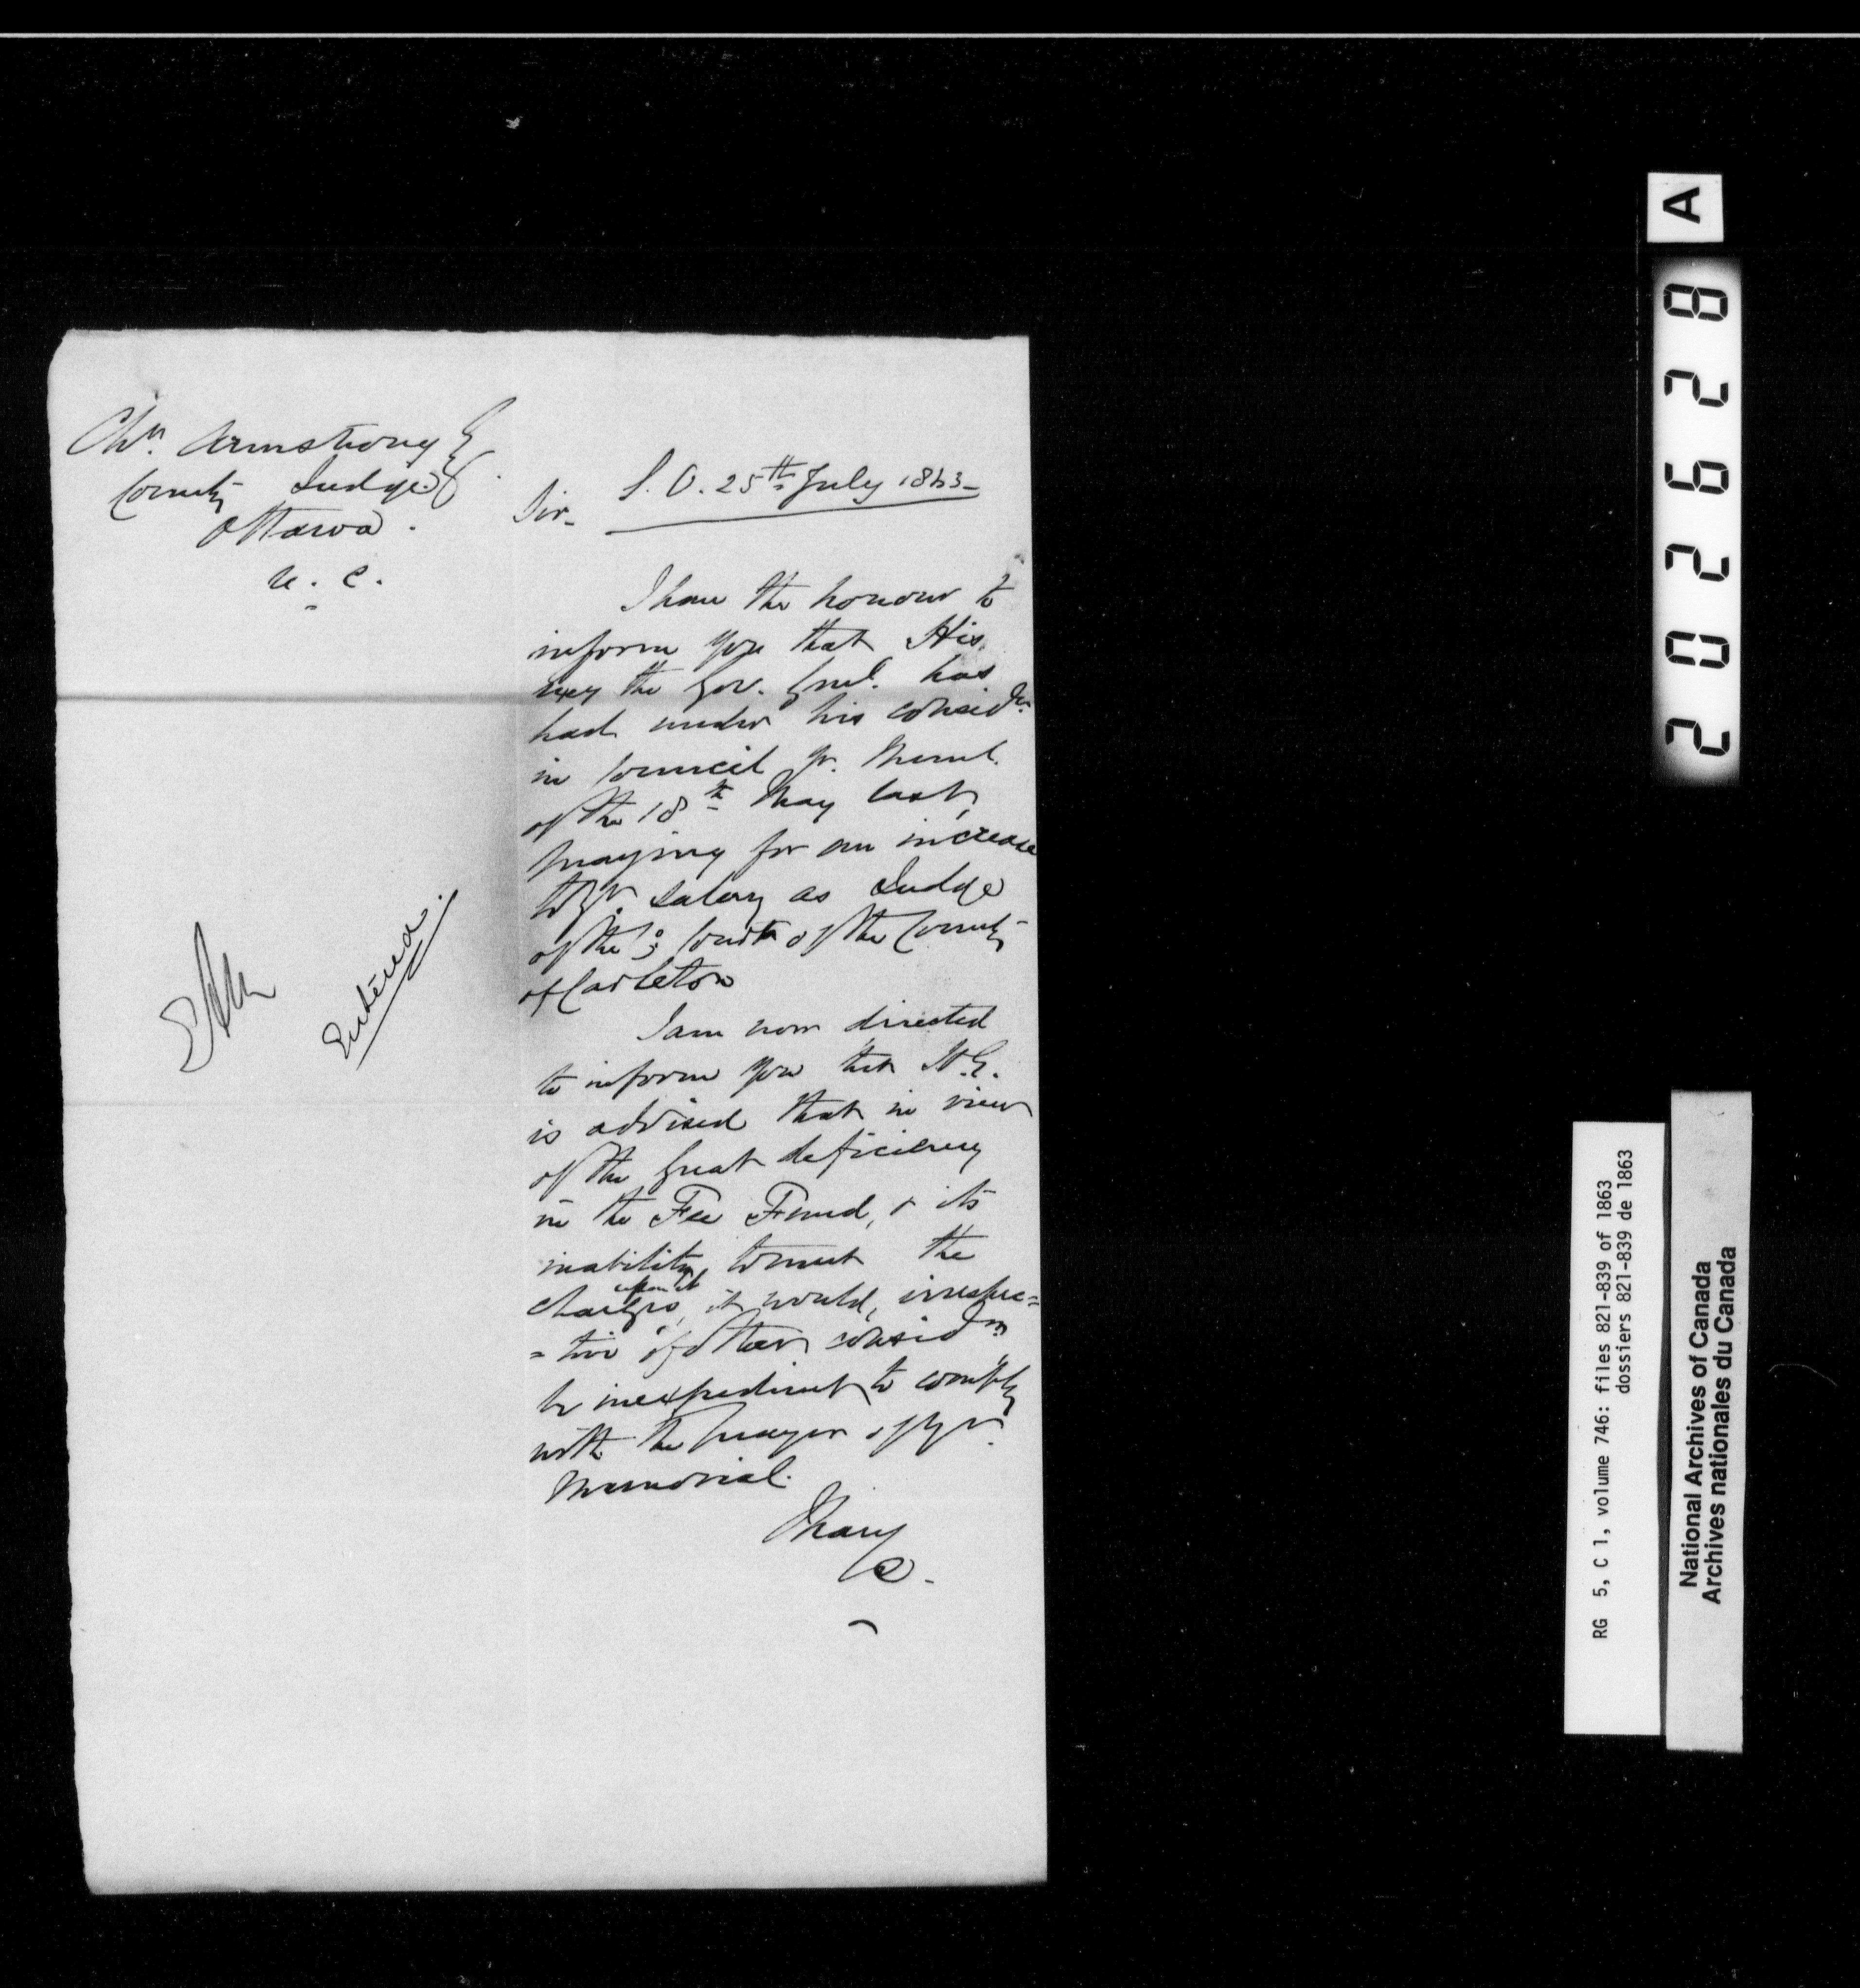 Chr. Armstrong E
County Judge
Ottawa.
U. C.
S. O. 25th July 1863
Sir
I have the honour to
inform you that His
Excy the Gov. Genl. has
had under his considn.
in Council yr. Meml.
of the 18th May last,
praying for an increase
to yr. salary as Judge
of the Co Court of the County
of Carleton
I am now directed
to inform you that H.E.
is advised that in view
of the great deficiency
in the Fee Fund, & its
inability to meet the
charges upon it, it would, irrespec=
=tive of other considns
be inexpedient to comply
with the prayer of yr.
Memorial.
I have
&.
Entered.
A
202628
RG 5, C 1, volume 746: files 821-839 of 1863
dossiers 821-839 de 1863
National Archives of Canada
Archives nationales du Canada